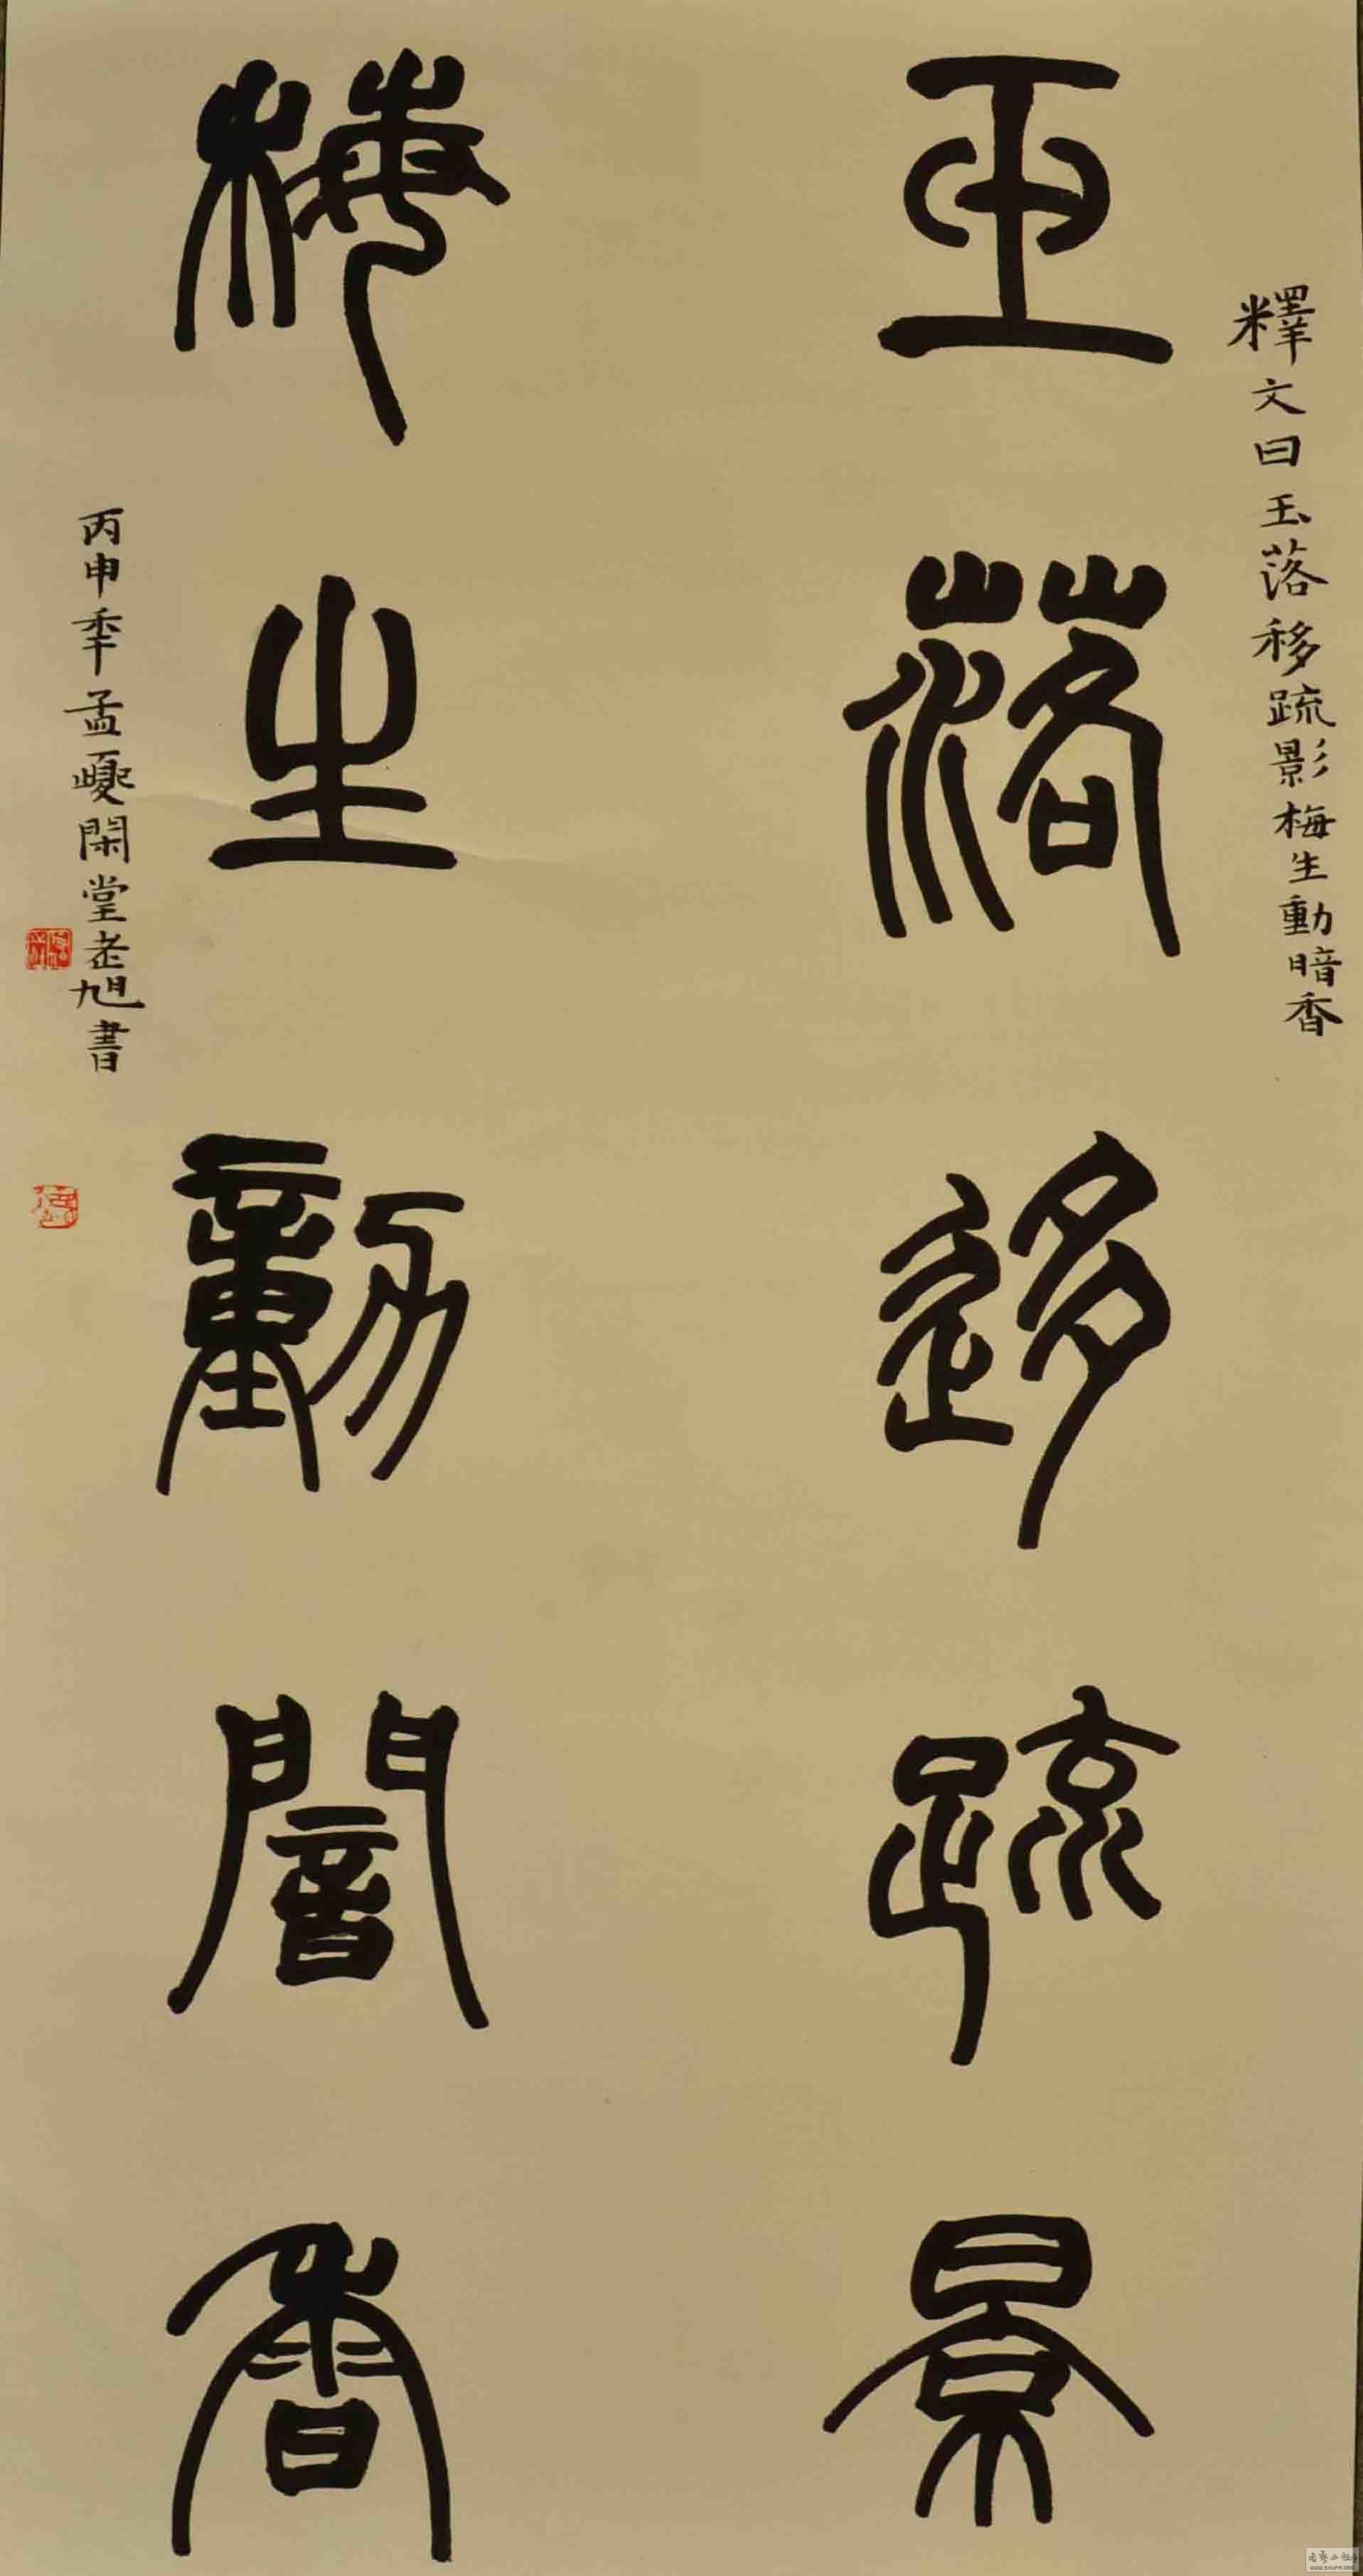 釋文曰玉落移疏影梅生動暗香
玉落迻疏景
梅生動闇香
丙申年孟夏閑堂老旭書
WWW.SHUFA.ORG